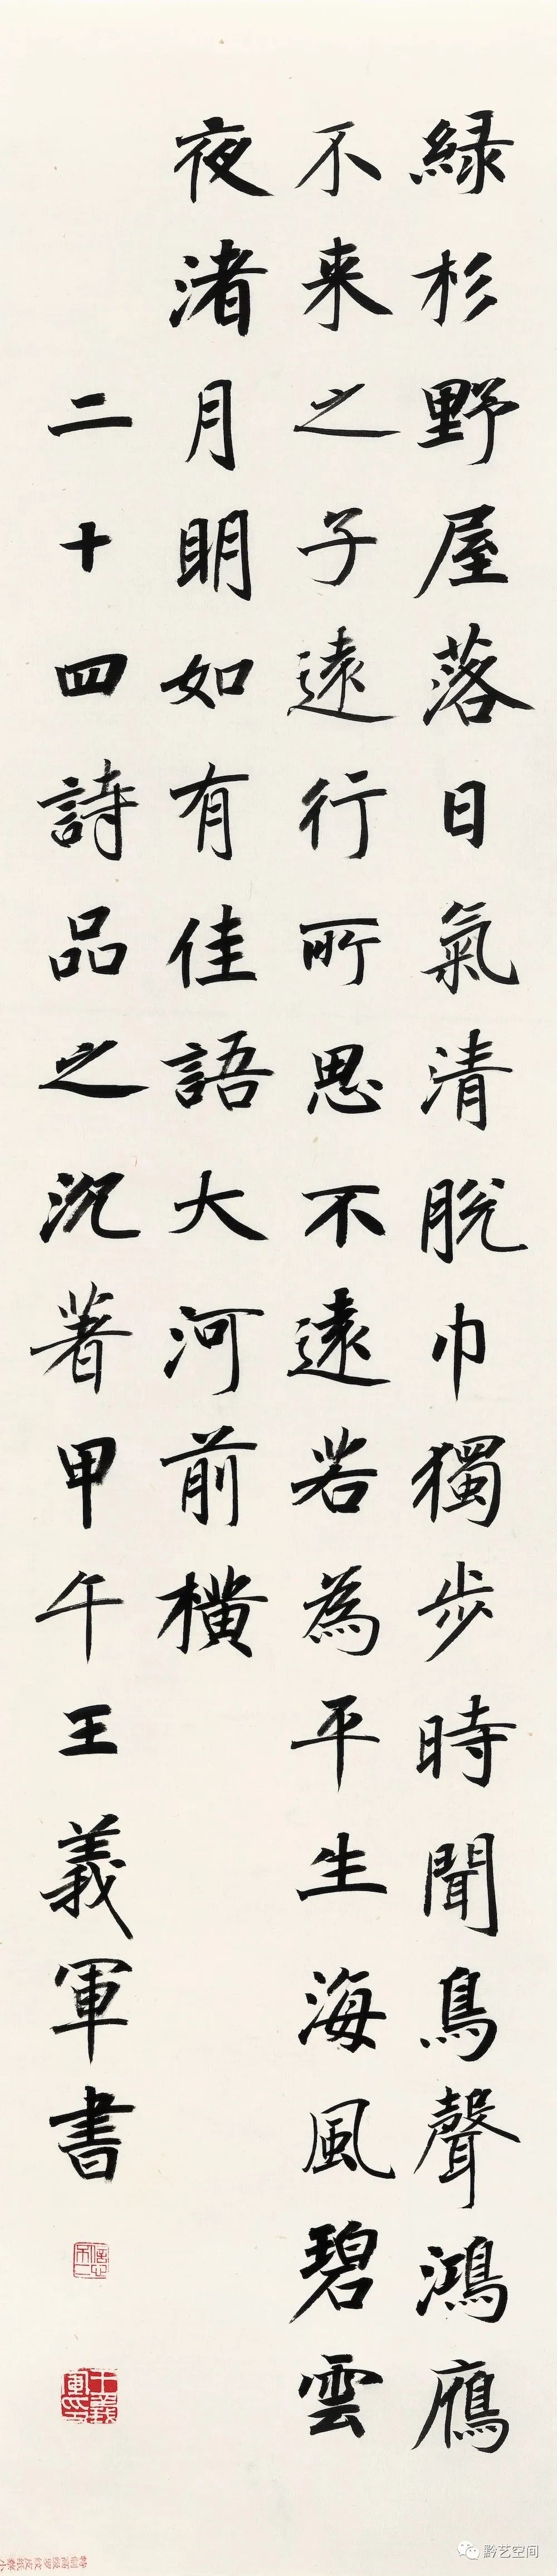 緑杉野屋落日氣清脱巾獨步時聞鳥聲鴻鴈
不来之子遠行所思不遠若為平生海風碧雲
夜渚月明如有佳語大河前横
二十四詩品之沉著甲午王義軍書
王義軍印
黔艺空间